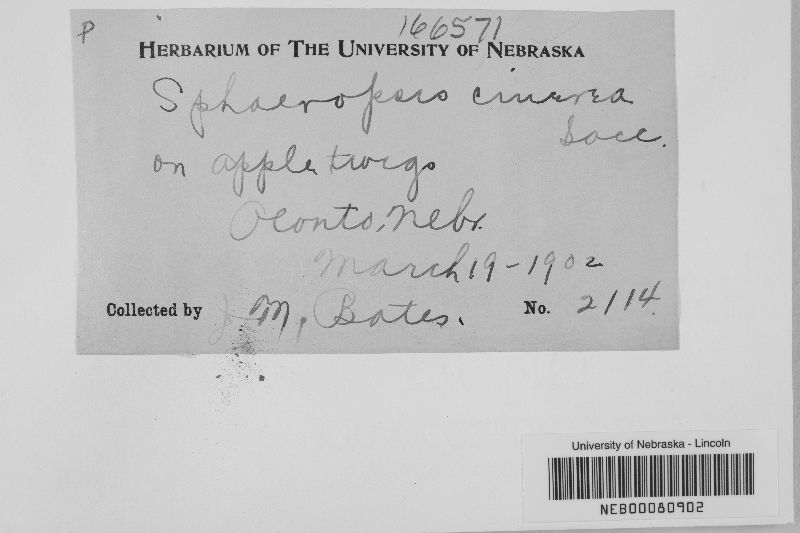 P 166571
HERBARIUM OF THE UNIVERSITY OF NEBRASKA
Sphaeropsis cinerea
Sacc.
on apple twigs
Oconto, Nebr.
March 19-1902
Collected by J. M. Bates. No. 2114.
University of Nebraska - Lincoln
NEB00080902